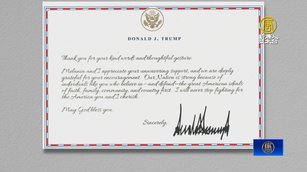 DONALD J. TRUMP
Thank you for your kind words and thoughtful gesture.
Melania and I appreciate your unwavering support, and we are deeply
grateful for your encouragement. Our Nation is strong because of
individuals like you who believe in—and defend—the great American ideals
of faith, family, community, and country first. I will never stop fighting for
the America you and I cherish.
May God bless you.
Sincerely,